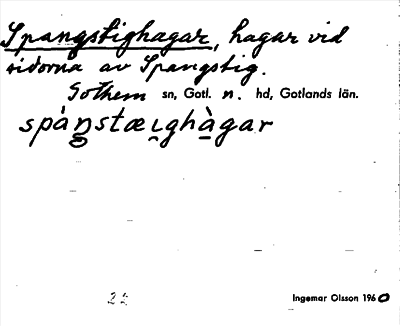 Spangstighagar, hagar vid
sidorna av Spangstig.
Gothem sn, Gotl. n. hd, Gotlands län.
spàŋstæi̯ghà̱gar
22
Ingemar Olsson 1960